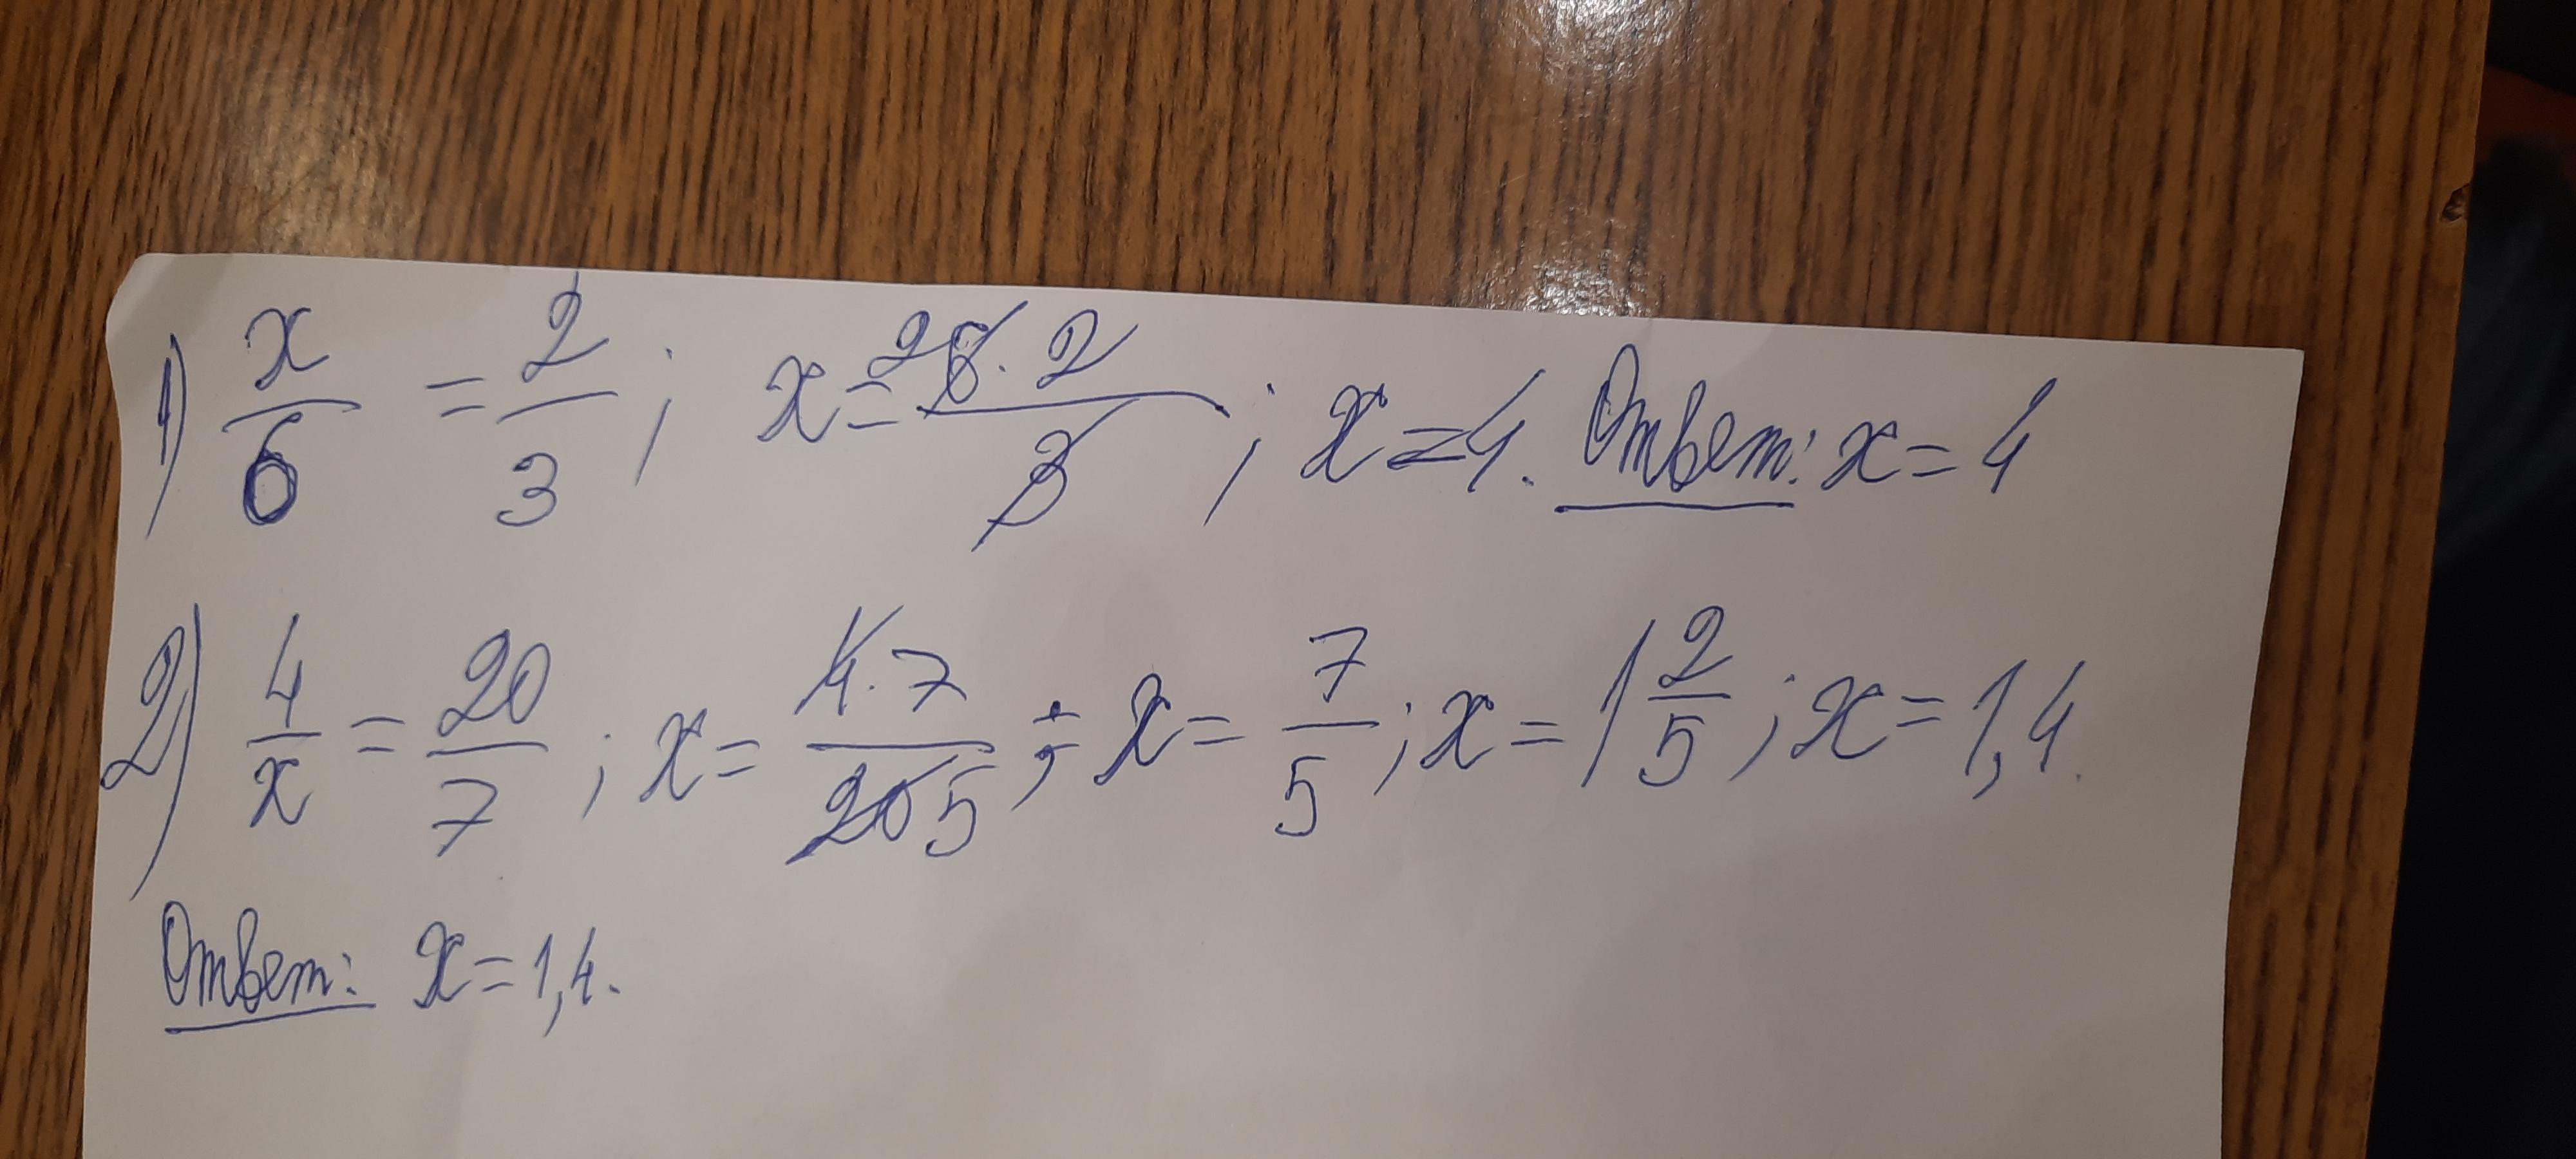 1) x/6 = 2/3; x = 2 6·2/3; x = 4. Ответ: x = 4
2) 4/x = 20/7; x = 4·7/20 5; x = 7/5; x = 1 2/5; x = 1,4.
Ответ: x = 1,4.